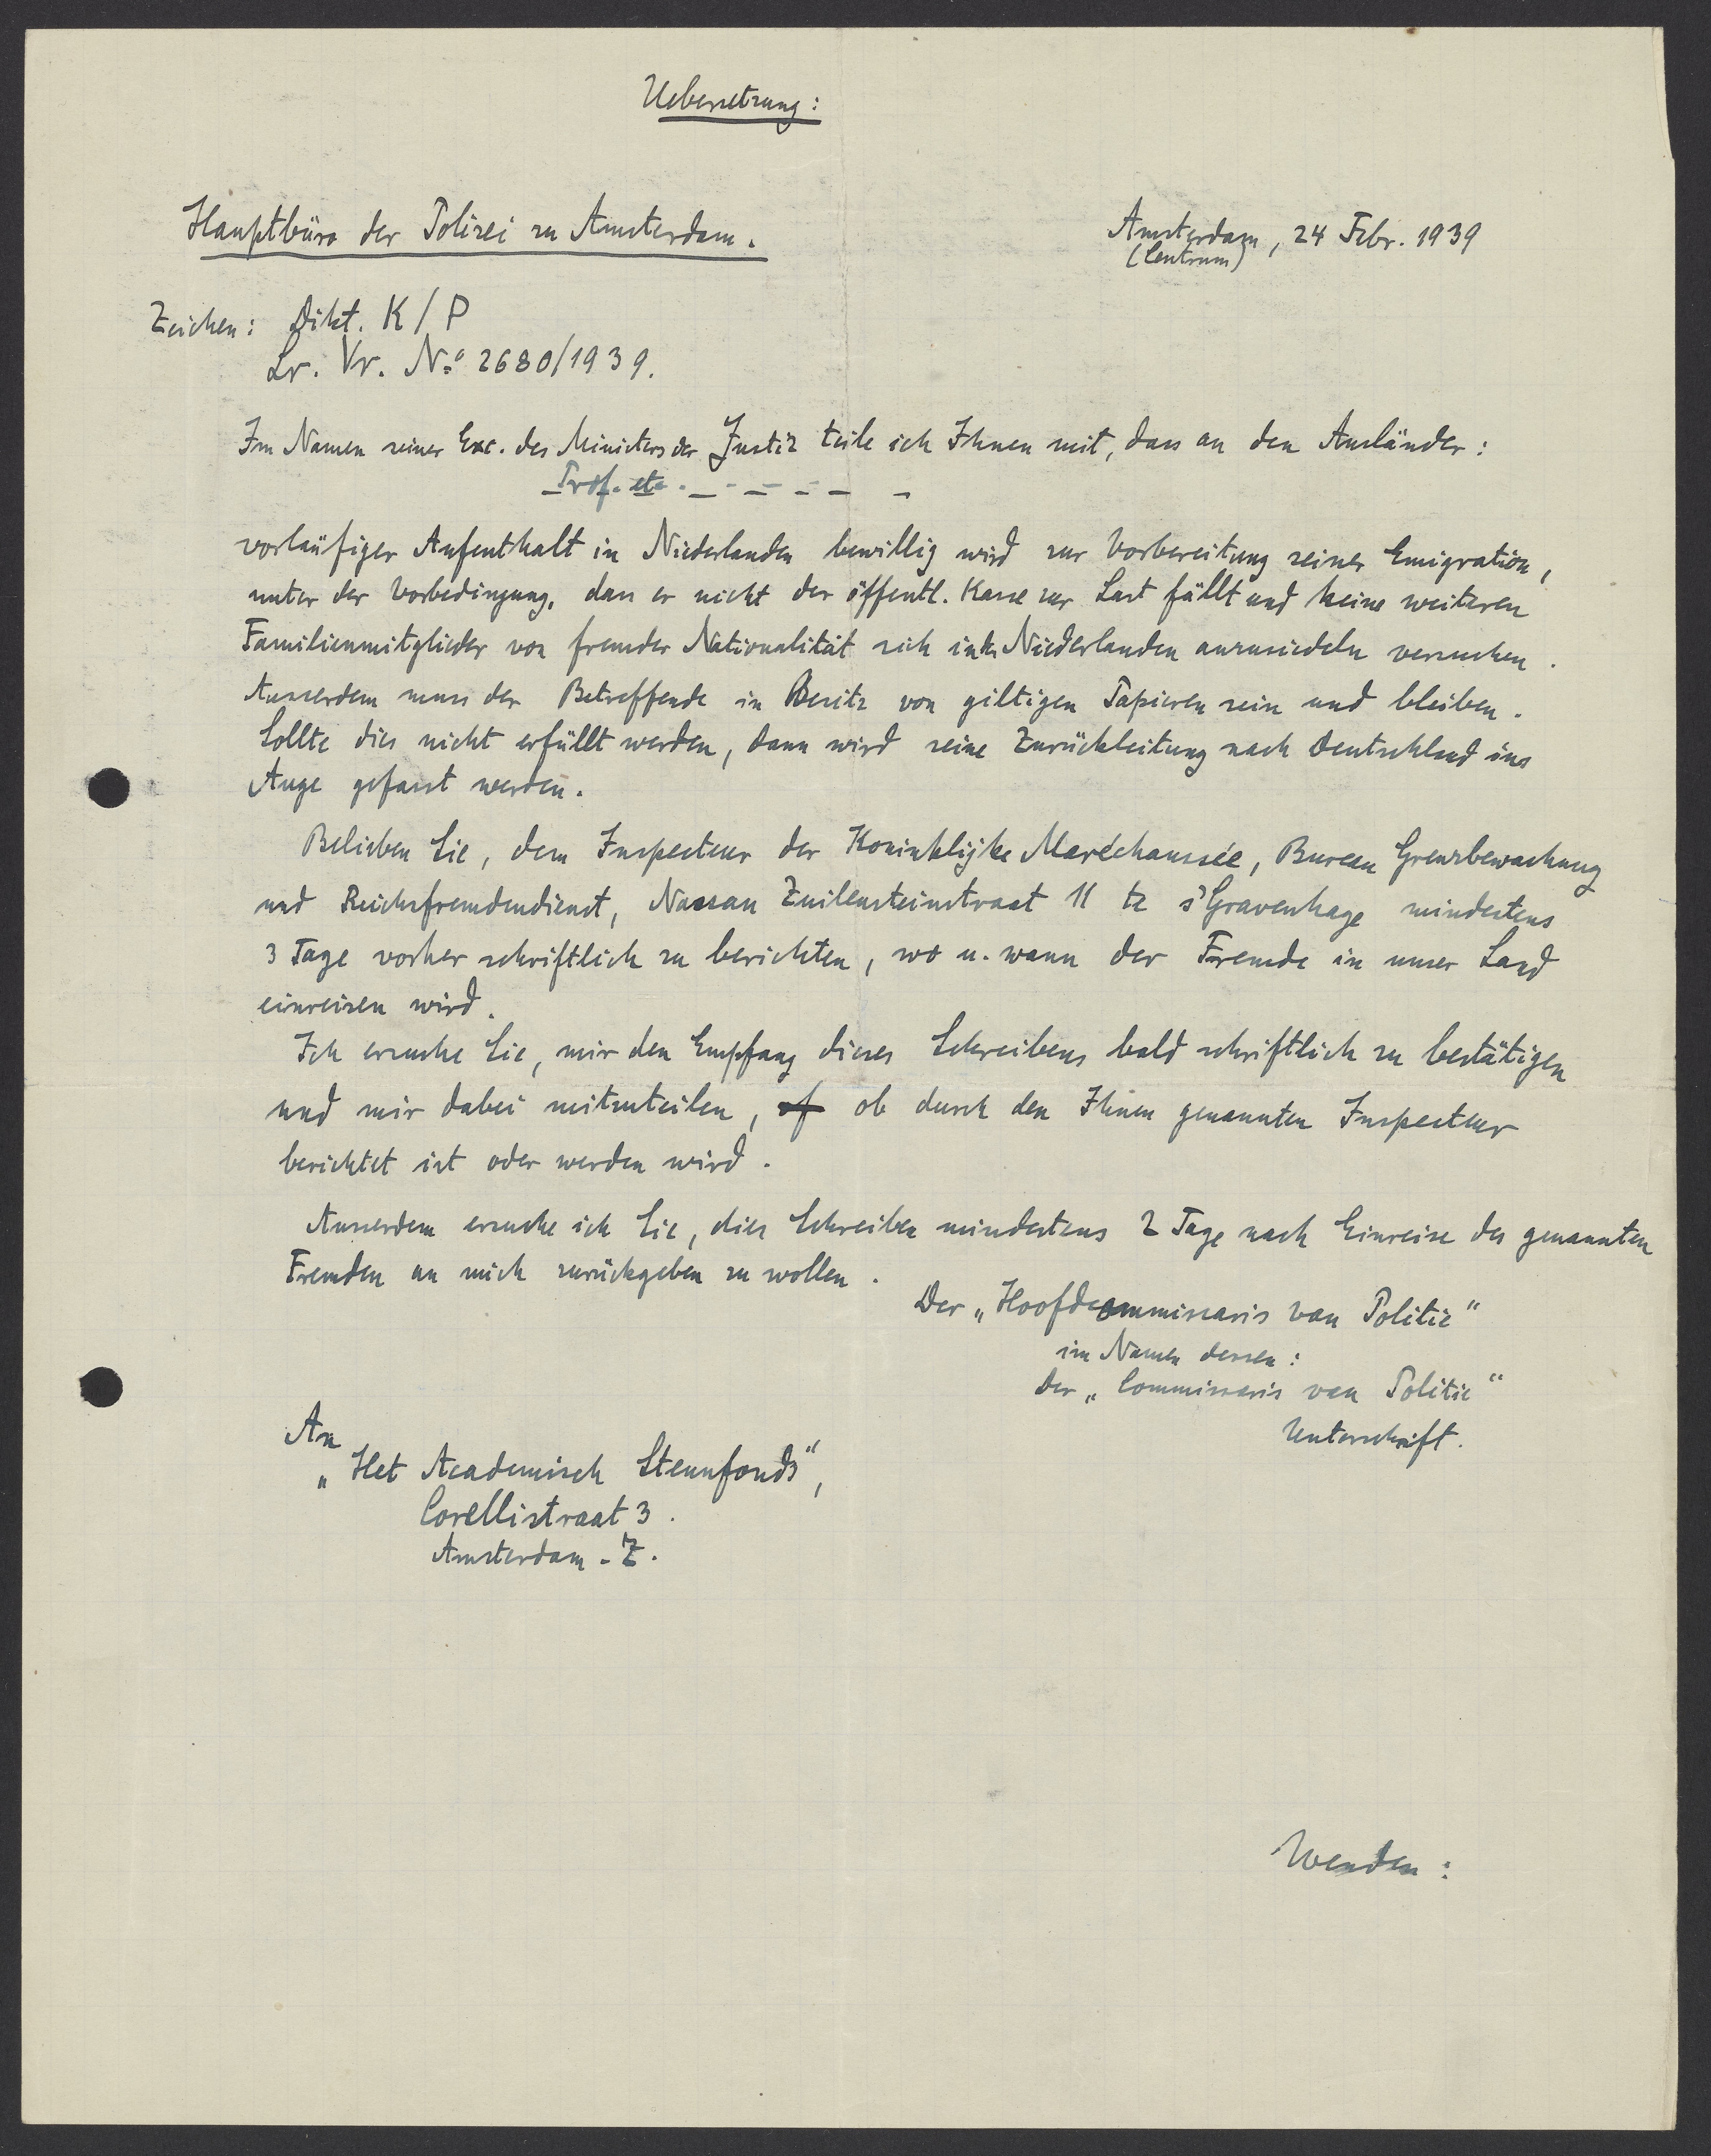 Uebersetzung:
Hauptbüro der Polizei zu Amsterdam.
Amsterdam, 24 Febr. 1939
(Centrum)
Zeichen: Dikt. K/P
Lr. Vr. No 2680/1939.
Im Namen seiner Exc. des Ministers der Justiz teile ich Ihnen mit, dass an den Ausländer:
Prof. etc. - - - - - -
vorläufiger Aufenthalt in Niederlanden bewillig wird zur Vorbereitung seiner Emigration,
unter der Vorbedingung, dass er nicht der öffentl. Kasse zur Last fällt und keine weiteren
Familienmitglieder von fremder Nationalität sich in de Niederlanden anzusiedeln versuchen.
Ausserdem muss der Betreffende in Besitz von giltigen Papieren sein und bleiben.
Sollte dies nicht erfüllt werden, dann wird seine Zurückleitung nach Deutschland ins
Auge gefasst werden.
Belieben Sie, dem Inspecteur der Koninklijke Maréchaussée, Bureau Grenzbewachung
und Reichsfremdendienst, Nassau Zuilensteinstraat 11 te s'Gravenhage mindestens
3 Tage vorher schriftlich zu berichten, wo u. wann der Fremde in unser Land
einreisen wird.
Ich ersuche Sie, mir den Empfang dieses Schreibens bald schriftlich zu bestätigen
und mir dabei mitzuteilen, of ob durch den Ihnen genannten Inspecteur
berichtet ist oder werden wird.
Ausserdem ersuche ich Sie, dies Schreiben mindestens 2 Tage nach Einreise des genannten
Fremden an mich zurückgeben zu wollen.
Der „Hoofdcommissaris van Politie"
im Namen dessen:
Der „Commissaris van Politie"
Unterschrift.
An
„Het Academisch Steunfonds",
Corellistraat 3.
Amsterdam - Z.
Wenden: